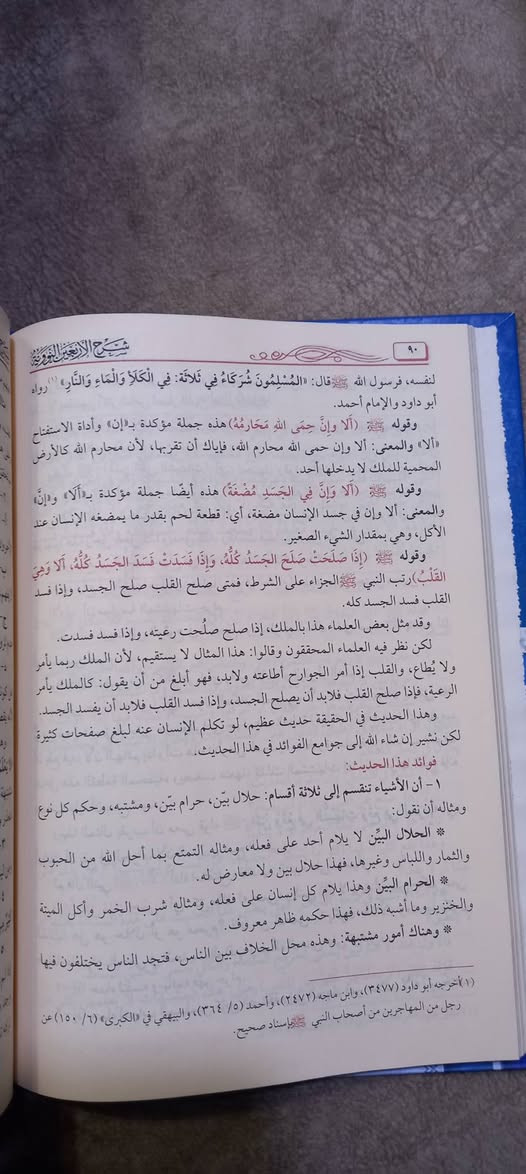 ٩٠
شرح الأربعين النووية
لنفسه، فرسول الله ﷺ قال: «المُسْلِمُونَ شُرَكَاءُ فِي ثَلاثَة: فِي الْكَلَأِ وَالْمَاءِ وَالنَّارِ» (١) رواه
أبو داود والإمام أحمد.
وقوله ﷺ (أَلا وإِنَّ حِمَى اللهِ مَحَارِمُهُ) هذه جملة مؤكدة بـ«إن» وأداة الاستفتاح
«ألا» والمعنى: ألا وإن حمى الله محارم الله، فإياك أن تقربها، لأن محارم الله كالأرض
المحمية للملك لا يدخلها أحد.
وقوله ﷺ (أَلا وَإِنَّ فِي الجَسَدِ مُضْغَةً) هذه أيضًا جملة مؤكدة بـ«أَلَا» و«إنَّ»
والمعنى: ألا وإن في جسد الإنسان مضغة، أي: قطعة لحم بقدر ما يمضغه الإنسان عند
الأكل، وهي بمقدار الشيء الصغير.
وقوله ﷺ (إِذَا صَلَحَتْ صَلَحَ الجَسَدُ كُلُّهُ، وَإِذَا فَسَدَتْ فَسَدَ الجَسَدُ كُلُّهُ، أَلا وَهِيَ
القَلْبُ) رتب النبي ﷺ الجزاء على الشرط، فمتى صلح القلب صلح الجسد، وإذا فسد
القلب فسد الجسد كله.
وقد مثل بعض العلماء هذا بالملك، إذا صلح صلُحت رعيته، وإذا فسد فسدت.
لكن نظر فيه العلماء المحققون وقالوا: هذا المثال لا يستقيم، لأن الملك ربما يأمر
ولا يُطاع، والقلب إذا أمر الجوارح أطاعته ولابد، فهو أبلغ من أن يقول: كالملك يأمر
الرعية، فإذا صلح القلب فلابد أن يصلح الجسد، وإذا فسد القلب فلابد أن يفسد الجسد.
وهذا الحديث في الحقيقة حديث عظيم، لو تكلم الإنسان عنه لبلغ صفحات كثيرة
لكن نشير إن شاء الله إلى جوامع الفوائد في هذا الحديث.
فوائد هذا الحديث:
١- أن الأشياء تنقسم إلى ثلاثة أقسام: حلال بيّن، حرام بيّن، ومشتبه، وحكم كل نوع
ومثاله أن نقول:
* الحلال البيِّن لا يلام أحد على فعله، ومثاله التمتع بما أحل الله من الحبوب
والثمار واللباس وغيرها، فهذا حلال بين ولا معارض له.
* الحرام البيِّن وهذا يلام كل إنسان على فعله، ومثاله شرب الخمر وأكل الميتة
والخنزير وما أشبه ذلك، فهذا حكمه ظاهر معروف.
* وهناك أمور مشتبهة: وهذه محل الخلاف بين الناس، فتجد الناس يختلفون فيها
(١) أخرجه أبو داود (٣٤٧٧)، وابن ماجه (٢٤٧٢)، وأحمد (٥/ ٣٦٤)، والبيهقي في «الكبرى» (٦/ ١٥٠) عن
رجل من المهاجرين من أصحاب النبي ﷺ بإسناد صحيح.